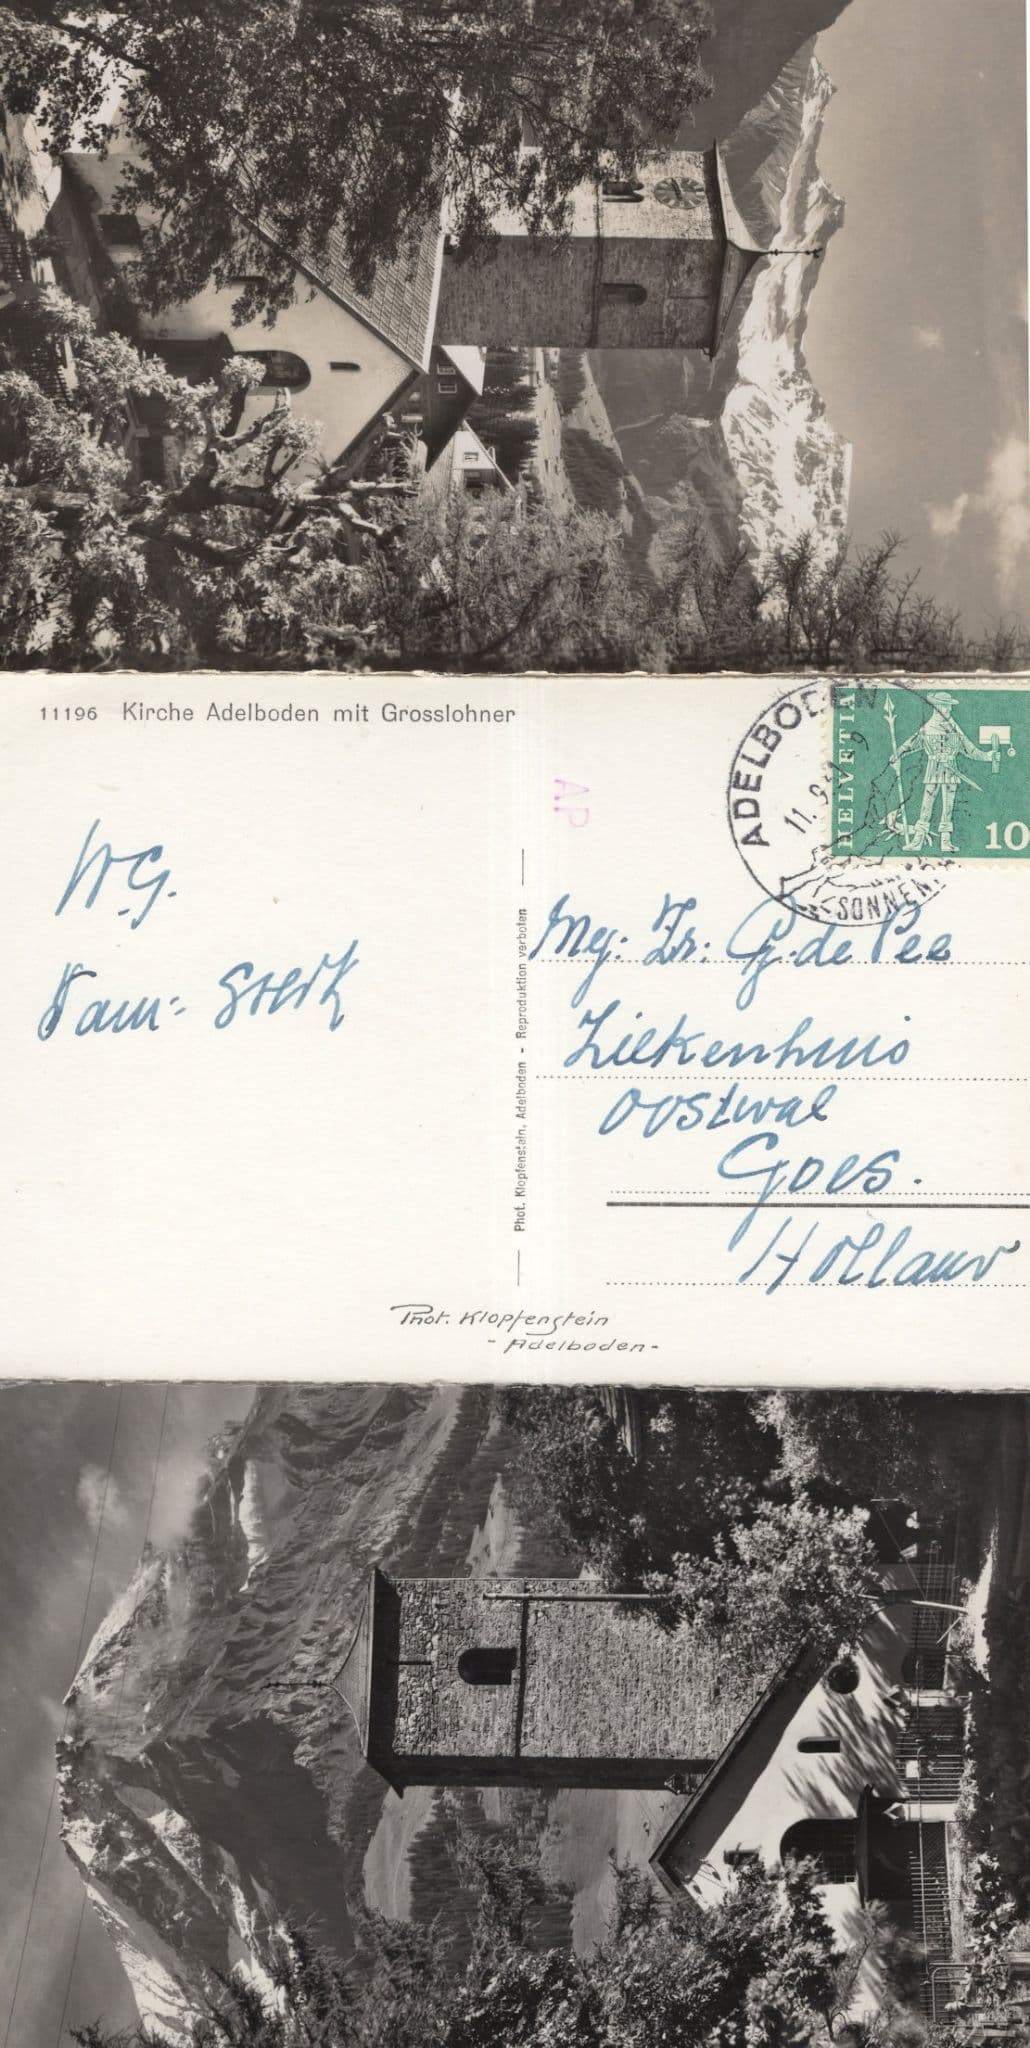 11196 Kirche Adelboden mit Grosslohner
W.G.
Fam:
Phot. Klopfenstein, Adelboden - Reproduktion verboten
AP
ADELBODEN
11. 9
SONNEN
HELVETIA
10
Mej: Zr: G. de Pee
Ziekenhuis
Oostwal
Goes.
Holland
Phot. Klopfenstein
- Adelboden -